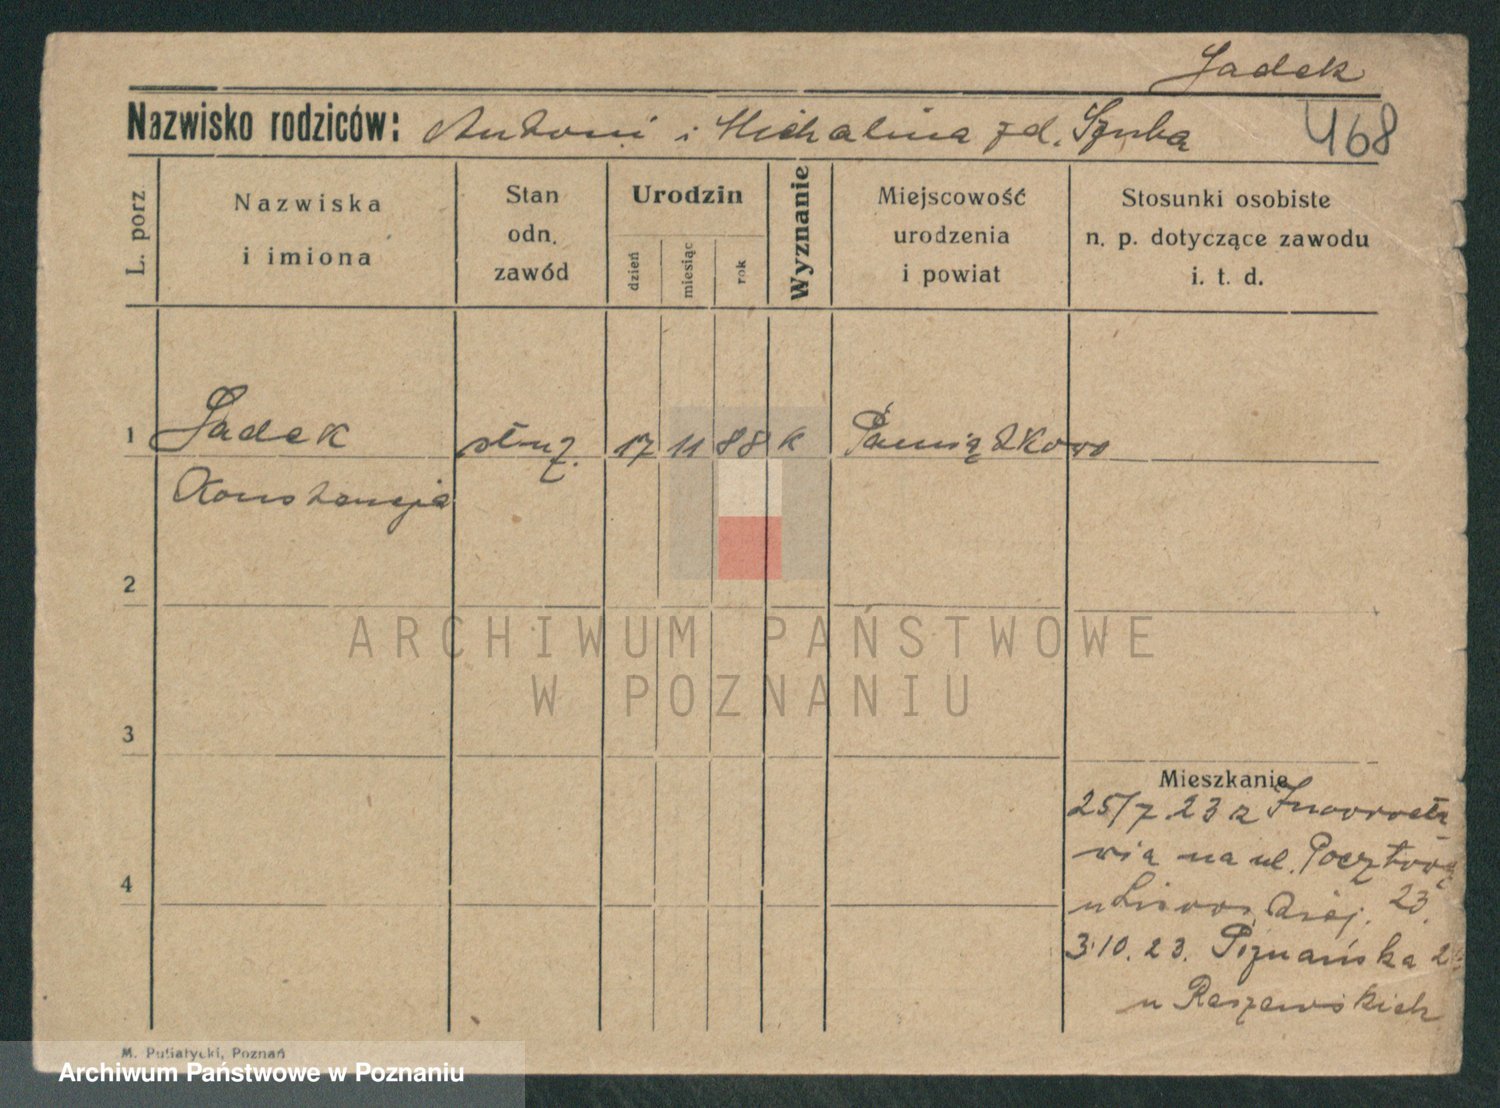 Sadek
Nazwisko rodziców: Antoni i Michalina zd. Szuba
468
L. porz
Nazwiska
i imiona
Stan
odn.
zawód
Urodzin
dzień
miesiąc
rok
Wyznanie
Miejscowość
urodzenia
i powiat
Stosunki osobiste
n. p. dotyczące zawodu
i. t. d.
1 Sadek służ. 17 11 88 k Pamiątkowo
Konstancja
2
ARCHIWUM PAŃSTWOWE
W POZNANIU
3
Mieszkanie
25/7.23 z Inowrocła
wia na ul. Pocztową
u 23.
4
3.10.23. Poznańska
u Raszewskich
M. Putiatycki, Poznań
Archiwum Państwowe w Poznaniu